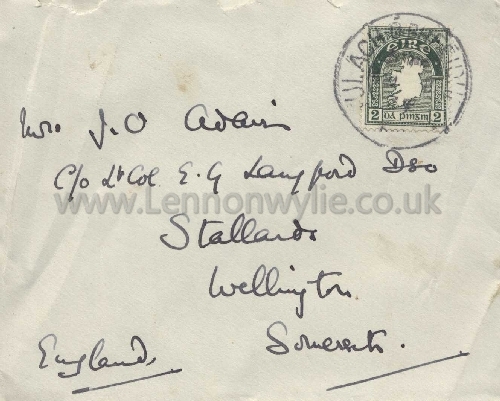 ÉIRE
2 dá pinginn 2
Mrs J. O Adair
c/o Lt Col. E. G Langford DSO
www.Lennonwylie.co.uk
Stallards
Wellington
Somerset.
England